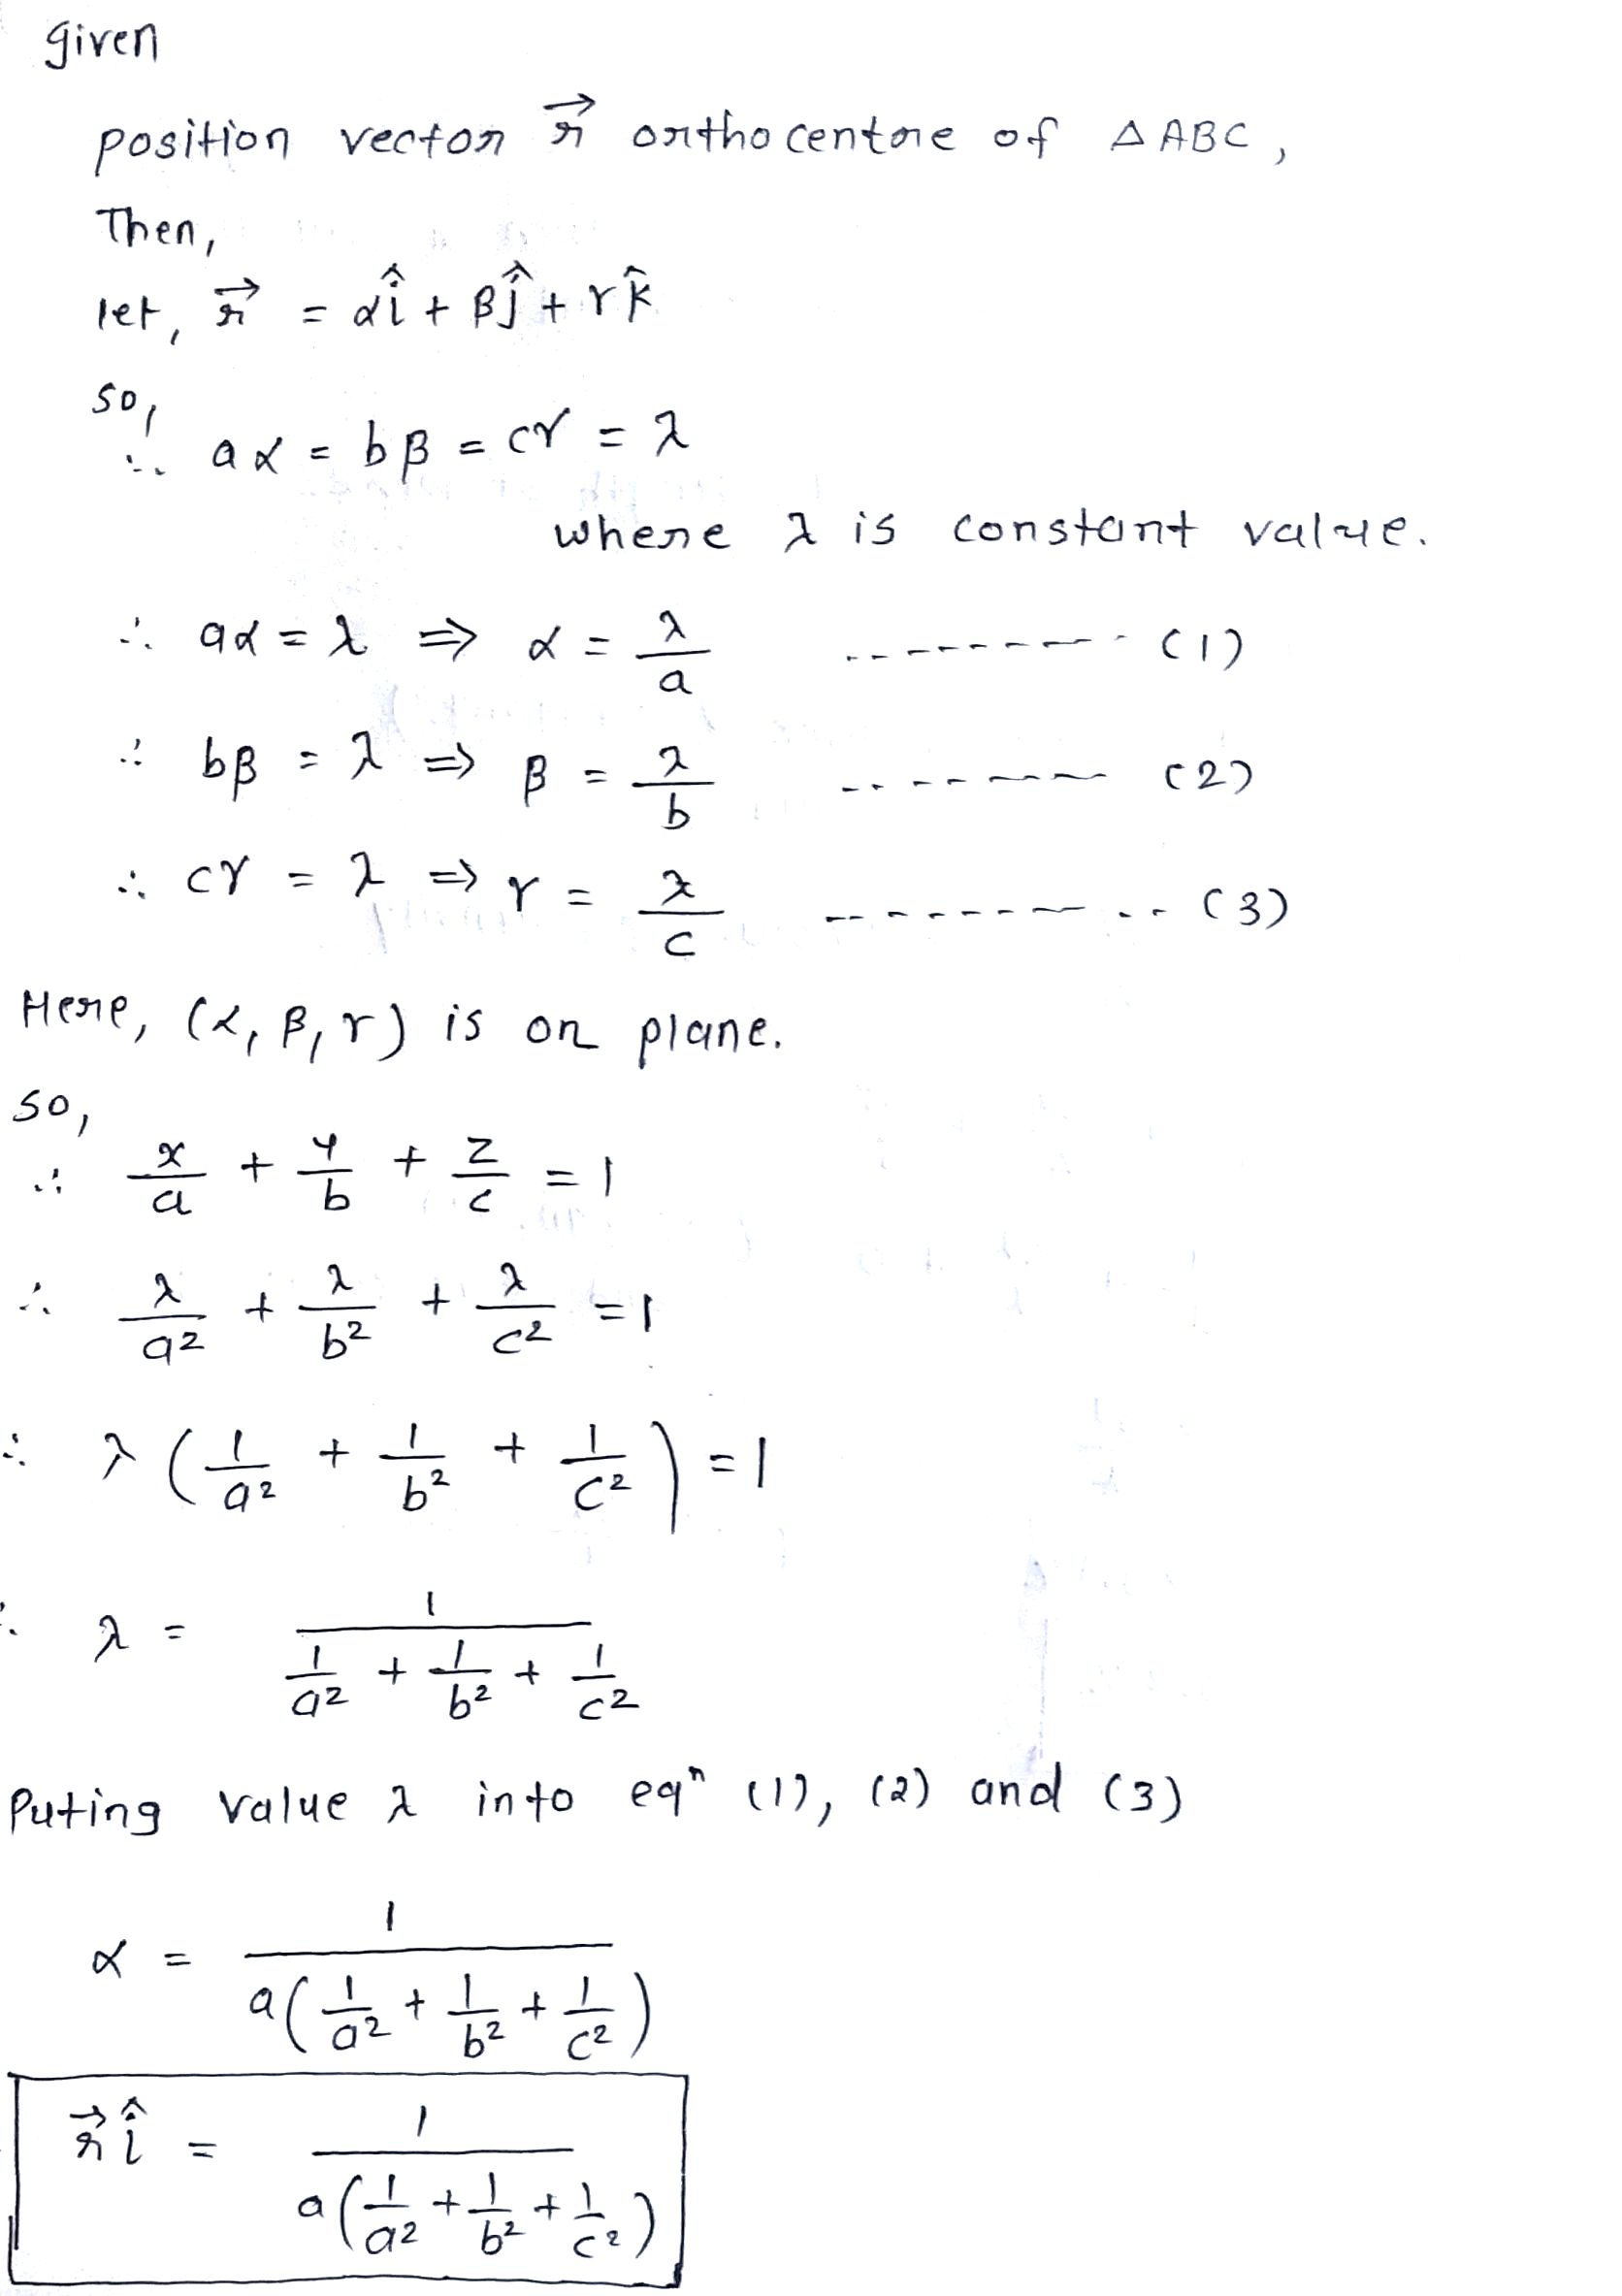 given
position vector r⃗ orthocentre of △ABC,
Then,
let, r⃗ = αî + βĵ + γk̂
so,
∴ aα = bβ = cγ = λ
where λ is constant value.
∴ aα = λ ⇒ α = λ/a -------- (1)
∴ bβ = λ ⇒ β = λ/b -------- (2)
∴ cγ = λ ⇒ γ = λ/c -------- (3)
Here, (α, β, γ) is on plane.
so,
∴ x/a + y/b + z/c = 1
∴ λ/a² + λ/b² + λ/c² = 1
∴ λ(1/a² + 1/b² + 1/c²) = 1
∴ λ = 1/(1/a² + 1/b² + 1/c²)
Puting value λ into eqⁿ (1), (2) and (3)
α = 1/(a(1/a² + 1/b² + 1/c²))
r⃗ î = 1/(a(1/a² + 1/b² + 1/c²))